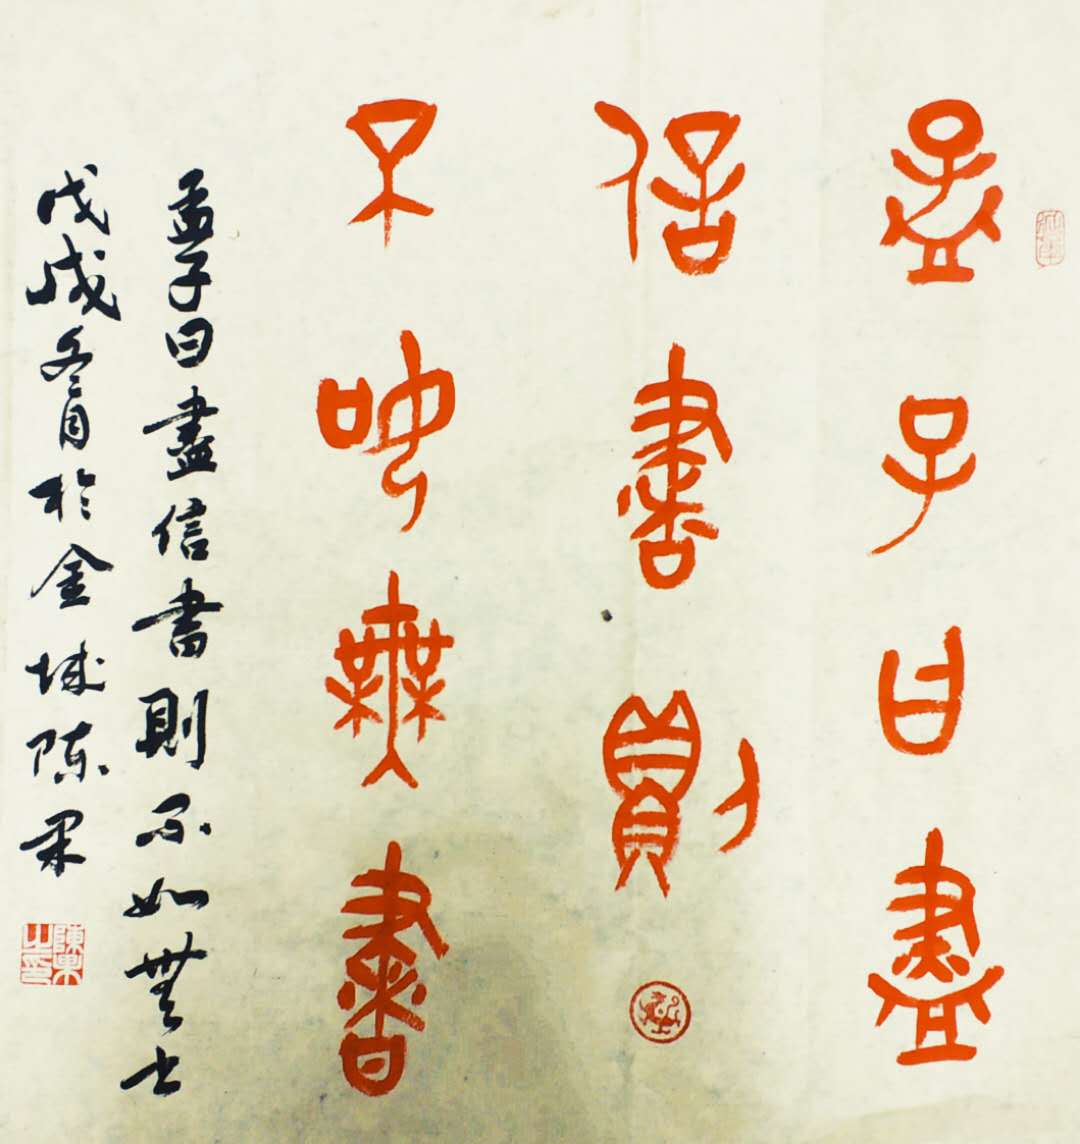 孟子曰盡
信書則
不如無書
孟子曰盡信書則不如無書
戊戌冬月於金城陳果
陳果之印